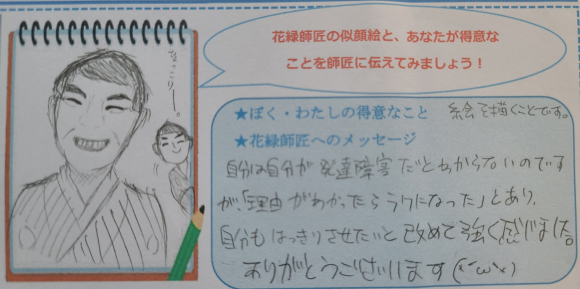 花緑師匠の似顔絵と、あなたが得意な
ことを師匠に伝えてみましょう！
にっこりー。
★ぼく・わたしの得意なこと 絵を描くことです。
★花緑師匠へのメッセージ
自分は自分が発達障害だとわからないのです
が、「理由がわかったらラクになった」とあり、
自分もはっきりさせたいと改めて強く感じました。
ありがとうございます(´･ω･`)